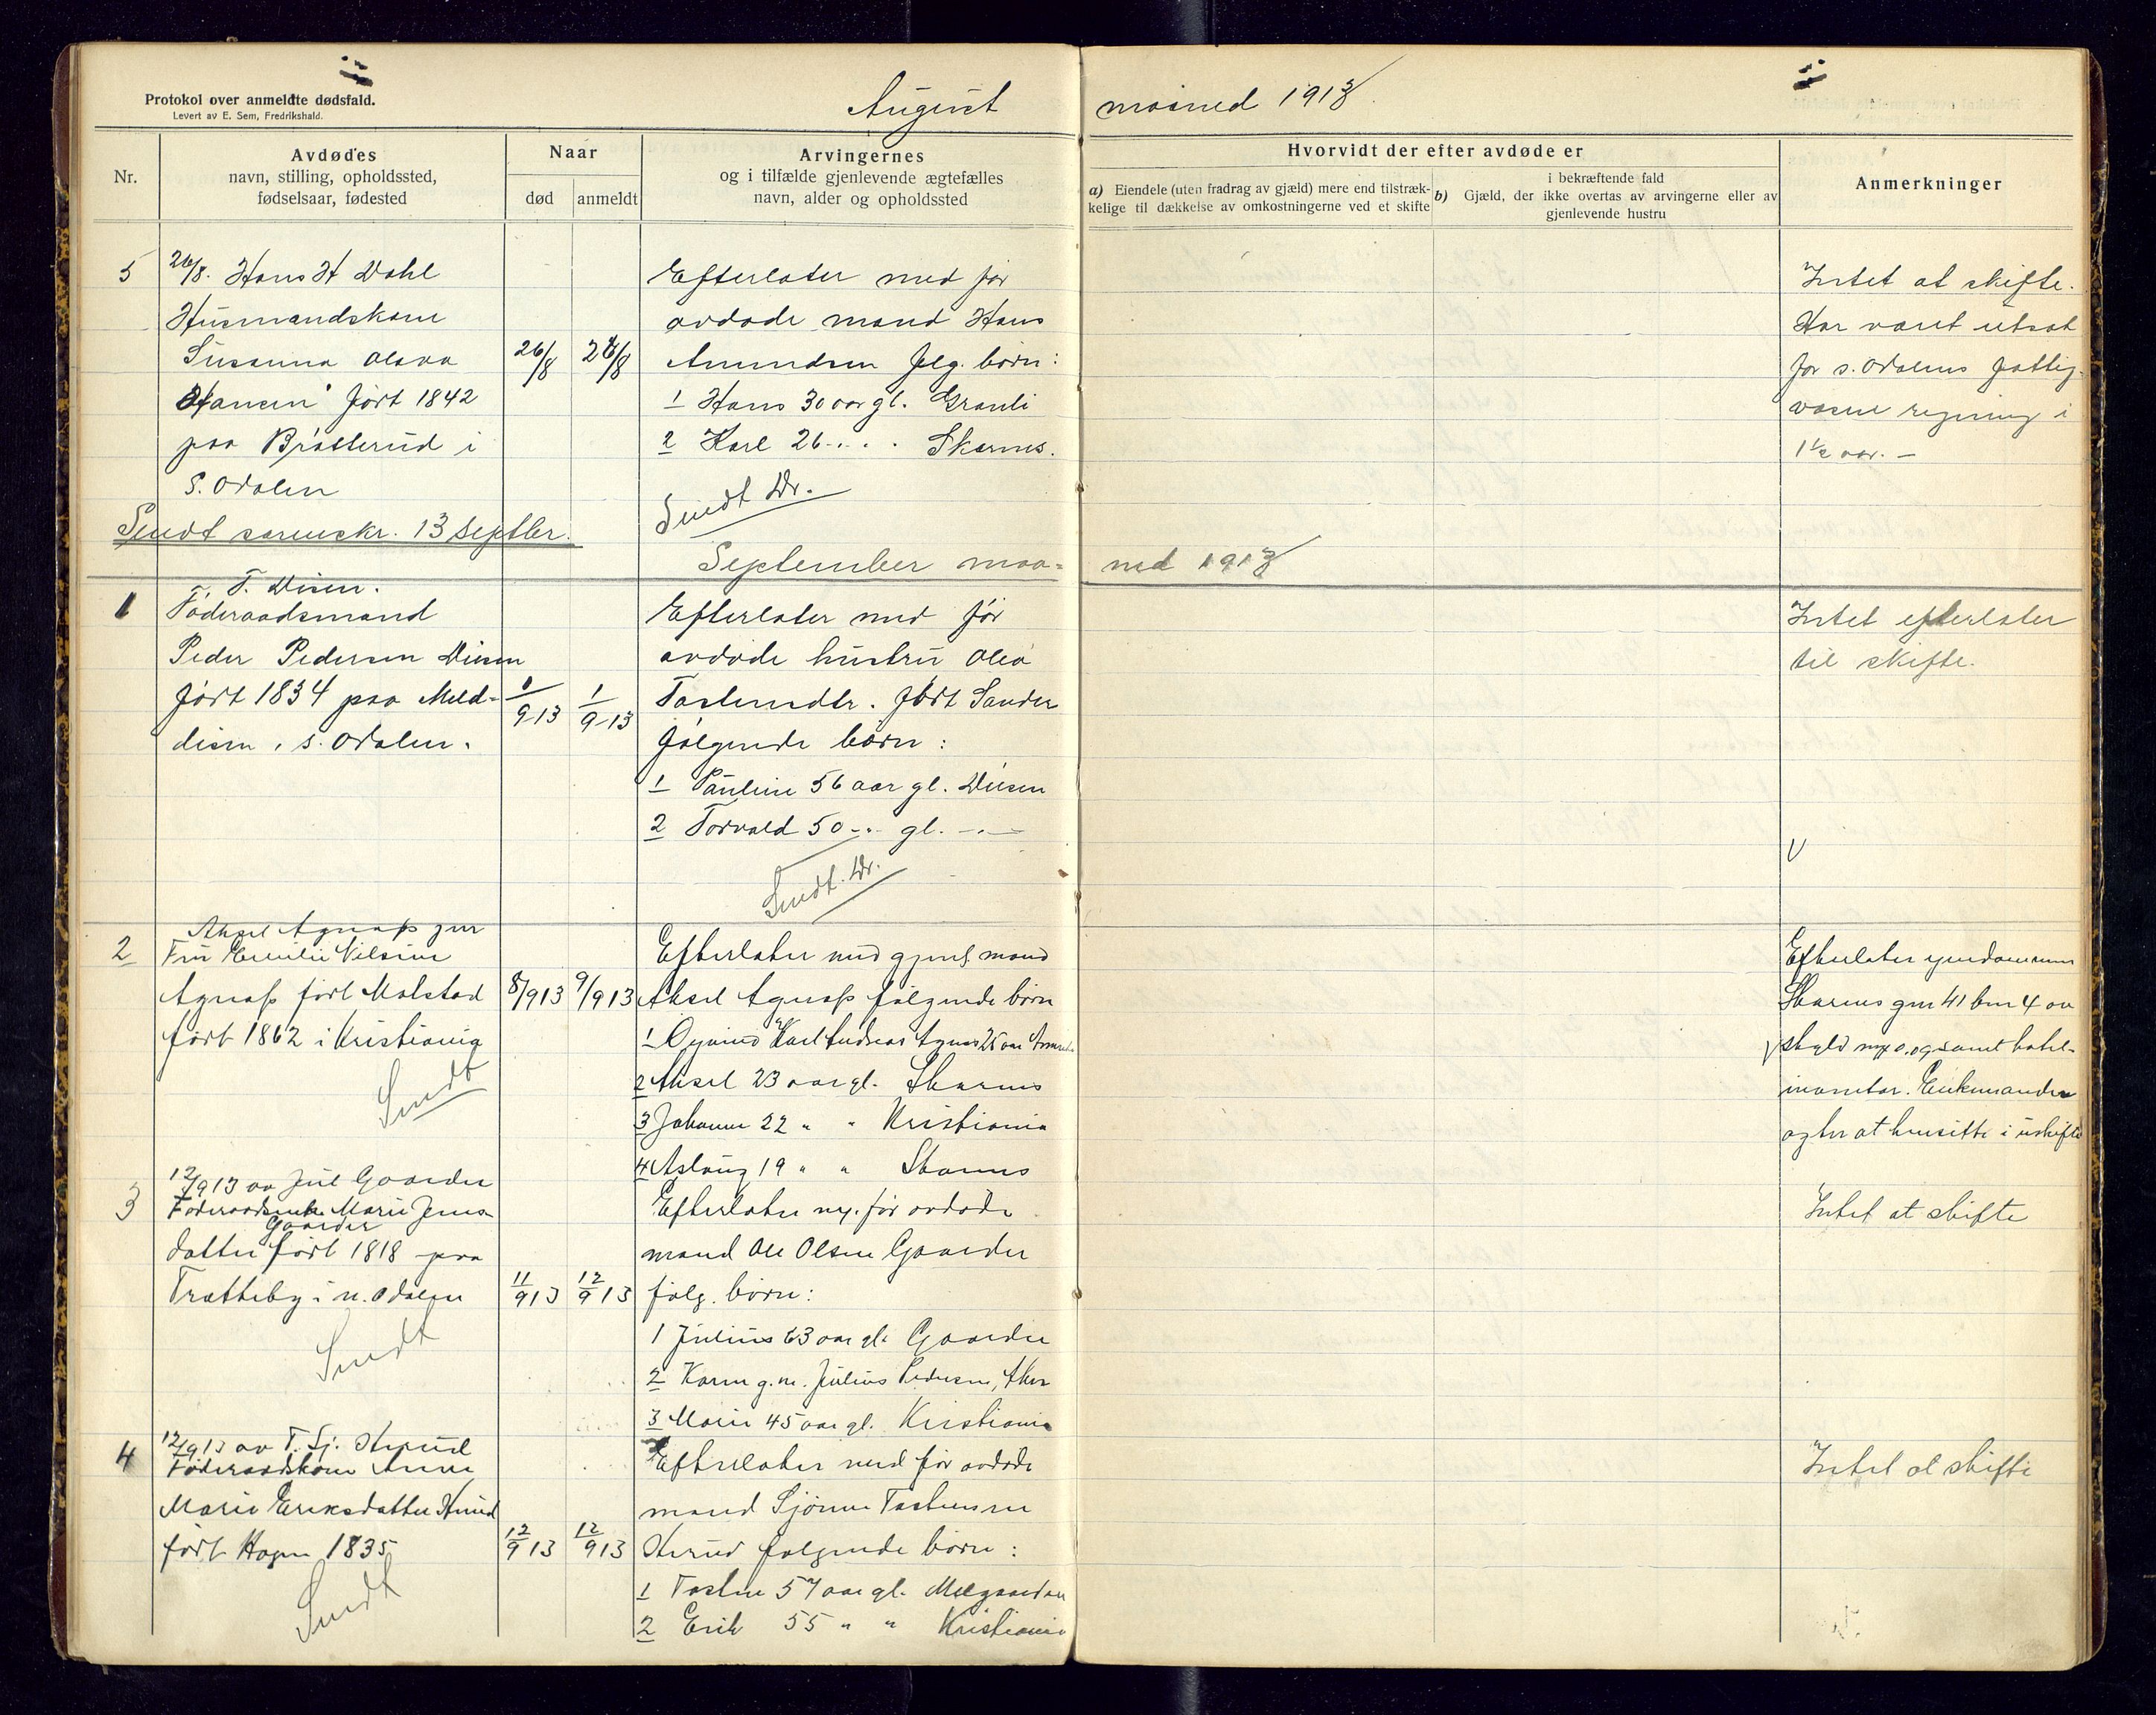 Protokol over anmeldte dødsfald.
Levert av E. Sem, Fredrikshald.
August maaned 1913
Nr.
Avdødes
navn, stilling, opholdssted,
fødselsaar, fødested
Naar
død
anmeldt
Arvingernes
og i tilfælde gjenlevende ægtefælles
navn, alder og opholdssted
Hvorvidt der efter avdøde er
a) Eiendele (uten fradrag av gjæld) mere end tilstræk-
kelige til dækkelse av omkostningerne ved et skifte
i bekræftende fald
b) Gjæld, der ikke overtas av arvingerne eller av
gjenlevende hustru
Anmerkninger
5
26/8. Hans H Dahl
Husmandskone
Susanna Olava
Hansen født 1842
paa Bråtterud i
S. Odalen
26/8
26/8
Efterlater med før
avdøde mand Hans
Amundsen følg. børn:
1 Hans 30 aar gl. Granli
2 Karl 26 - . . Skarnes.
Sendt Dr.
Intet at skifte.
Har været utsat
for s. Odalens fattig-
væsens regning i
1½ aar. -
Sendt sorenskr. 13 septbr.
September maa- ned 1913
1
T. Disen.
Føderaadsmand
Peder Pedersen Disen
født 1834 paa Meld-
disen, s. Odalen.
1/9 13
1/9 13
Efterlater med før
avdøde hustru Olea
Tostensdtr. født Sander
følgende børn:
1 Pauline 56 aar gl. Disen
2 Torvald 50 -"- gl. -"-
Sendt. Dr.
Intet efterlater
til skifte.
V
2
Aksel Agnæss
Fru Emilie Nilsine
Agnæss født Molstad
født 1862 i Kristiania
Sendt
8/9 13
9/9 13
Efterlater med gjenl. mand
Aksel Agnæss følgende børn
1 Øyvind Karl Andreas Agnæs 25 aar
2 Aksel 23 aar gl. Skarnes
3 Johanne 22 " " Kristiania
4 Aslaug 19 " " Skarnes
Efterlater eiendommen
Skarnes gnr 41 bnr 4 av
skyld mk 0.09 samt hotel-
inventar. Enkemanden
agter at hensitte i uskifte
3
12/9 13 av Jul Gaarder
Føderaadsenke Marie Jens
Gaarder
datter født 1818 paa
Trætteby i n. Odalen
Sendt
11/9 13
12/9 13
Efterlater m. før avdøde
mand Ole Olsen Gaarder
følg. børn:
1 Julius 63 aar gl. Gaarder
2 Karen g. m. Julius Pedersen, Aker
3 Marie 45 aar gl. Kristiania
Intet at skifte
4
12/9 13 av T. Sj. Herud
Føderaadskone Anne
Marie Eriksdatter Herud
født Hagen 1835
Sendt
12/9 13
12/9 13
Efterlater med før avdøde
mand Sjønne Tostensen
Herud følgende børn:
1 Tosten 57 aar gl.
2 Erik 55 " " Kristiania
Intet at skifte